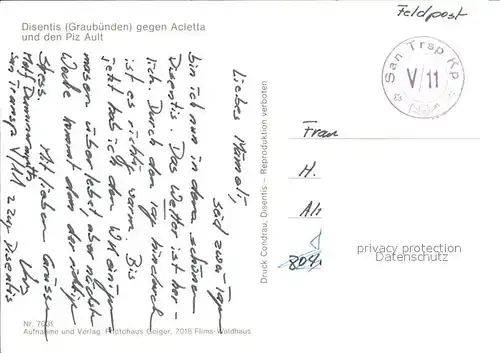 Disentis (Graubünden) gegen Acletta
und den Piz Ault
Feldpost
San Trsp Kp
V/11
Liebes Mämeli,
seid zwei Tagen
bin ich nun in dem schönen
Disentis. Das Wetter ist herr-
lich. Durch den Tag hindurch
ist es richtig warm. Bis
jetzt hab ich den WK einiger-
massen überlebt, aber nächste
Woche kommt dann der richtige
Stress. Mit lieben Grüssen
Urs
San Transp V/11 z Zug Disentis
Frau
H.
804
privacy protection
Datenschutz
Druck Condrau, Disentis – Reproduktion verboten
Nr. 7039
Aufnahme und Verlag: Photohaus Geiger, 7018 Flims-Waldhaus